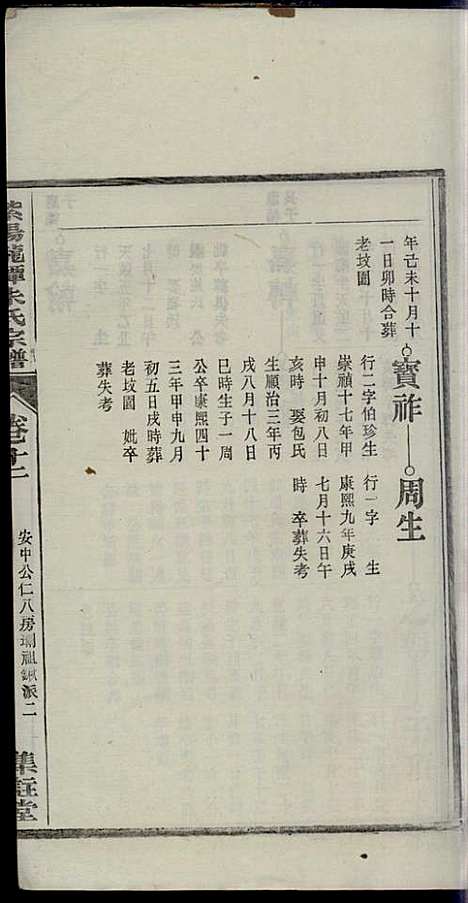 年己未十月十
一日卯時合葬
老坟圖
寶祚
行二字伯珍生
崇禎十七年甲
申十月初八日
亥時 娶包氏
生順治三年丙
戌八月十八日
巳時生子一周
公卒康熙四十
三年甲申九月
初五日戌時葬
老坟圖 妣卒
葬失考
周生
行一字 生
康熙九年庚戌
七月十六日午
時 卒葬失考
紫陽龍譚朱氏宗譜
卷十一
安中公仁八房 祖 派二
集註堂